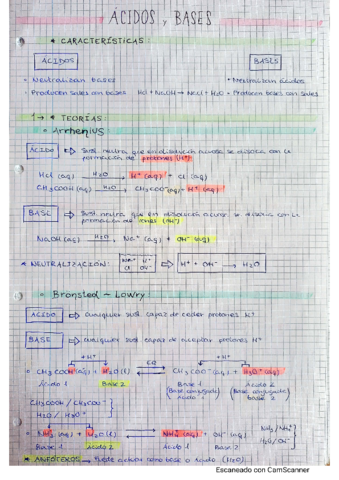 ÁCIDOS y BASES
* CARACTERÍSTICAS:
ÁCIDOS BASES
◦ Neutralizan bases ◦ Neutralizan ácidos
◦ Producen sales con bases HCl + NaOH → NaCl + H₂O ◦ Producen bases con sales
1 → * TEORÍAS
◦ Arrhenius
ÁCIDO ⇨ Sust. neutra que en disolución acuosa se disocia con la
formación de protones (H⁺)
HCl (aq) H₂O→ H⁺ (aq) + Cl (aq)
CH₃COOH (aq) H₂O→ CH₃COO⁻(aq) + H⁺ (aq)
BASE ⇨ Sust. neutra que en disolución acuosa se disocia con la
formación de iones (OH⁻)
NaOH (aq) H₂O→ Na⁺ (aq) + OH⁻ (aq)
* NEUTRALIZACIÓN: Na⁺ H⁺ Cl⁻ OH⁻ ⇨ H⁺ + OH⁻ → H₂O
◦ Bronsted - Lowry:
ÁCIDO ⇨ Cualquier sust. capaz de ceder protones H⁺
BASE ⇨ Cualquier sust. capaz de aceptar protones H⁺
+H⁺ EQ +H⁺
◦ CH₃COOH (aq) + H₂O (l) ⇄ CH₃COO⁻ (aq) + H₃O⁺ (aq)
Ácido 1 Base 2 Base 1 Ácido 2
(Base conjugada) Ácido 1 (Ácido conjugado) base 2
CH₃COOH / CH₃COO⁻
H₂O / H₃O⁺
◦ NH₃ (aq) + H₂O (l) ⇄ NH₄⁺ (aq) + OH⁻ (aq) NH₃/NH₄⁺
H₂O/OH⁻
Base 1 Ácido 2 Ácido 1 Base 2
* ANFÓTEROS → Puede actuar como base o ácido (H₂O).
Escaneado con CamScanner